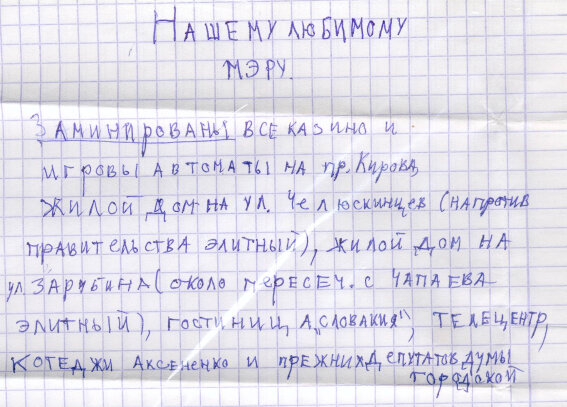 НАШЕМУ ЛЮБИМОМУ
МЭРУ.
ЗАМИНИРОВАНЫ ВСЕ КАЗИНО И
ИГРОВЫ АВТОМАТЫ НА пр. Кирова,
ЖИЛОЙ ДОМ НА УЛ. Челюскинцев (НАПРОТИВ
ПРАВИТЕЛЬСТВА ЭЛИТНЫЙ), ЖИЛОЙ ДОМ НА
ул. ЗАРУБИНА (около пересеч. с ЧАПАЕВА
ЭЛИТНЫЙ), ГОСТИНИЦА „СЛОВАКИЯ", ТЕЛЕЦЕНТР,
КОТЕДЖИ Аксененко и ПРЕЖНИХ ДЕПУТАТОВ ДУМЫ
ГОРОДСКОЙ